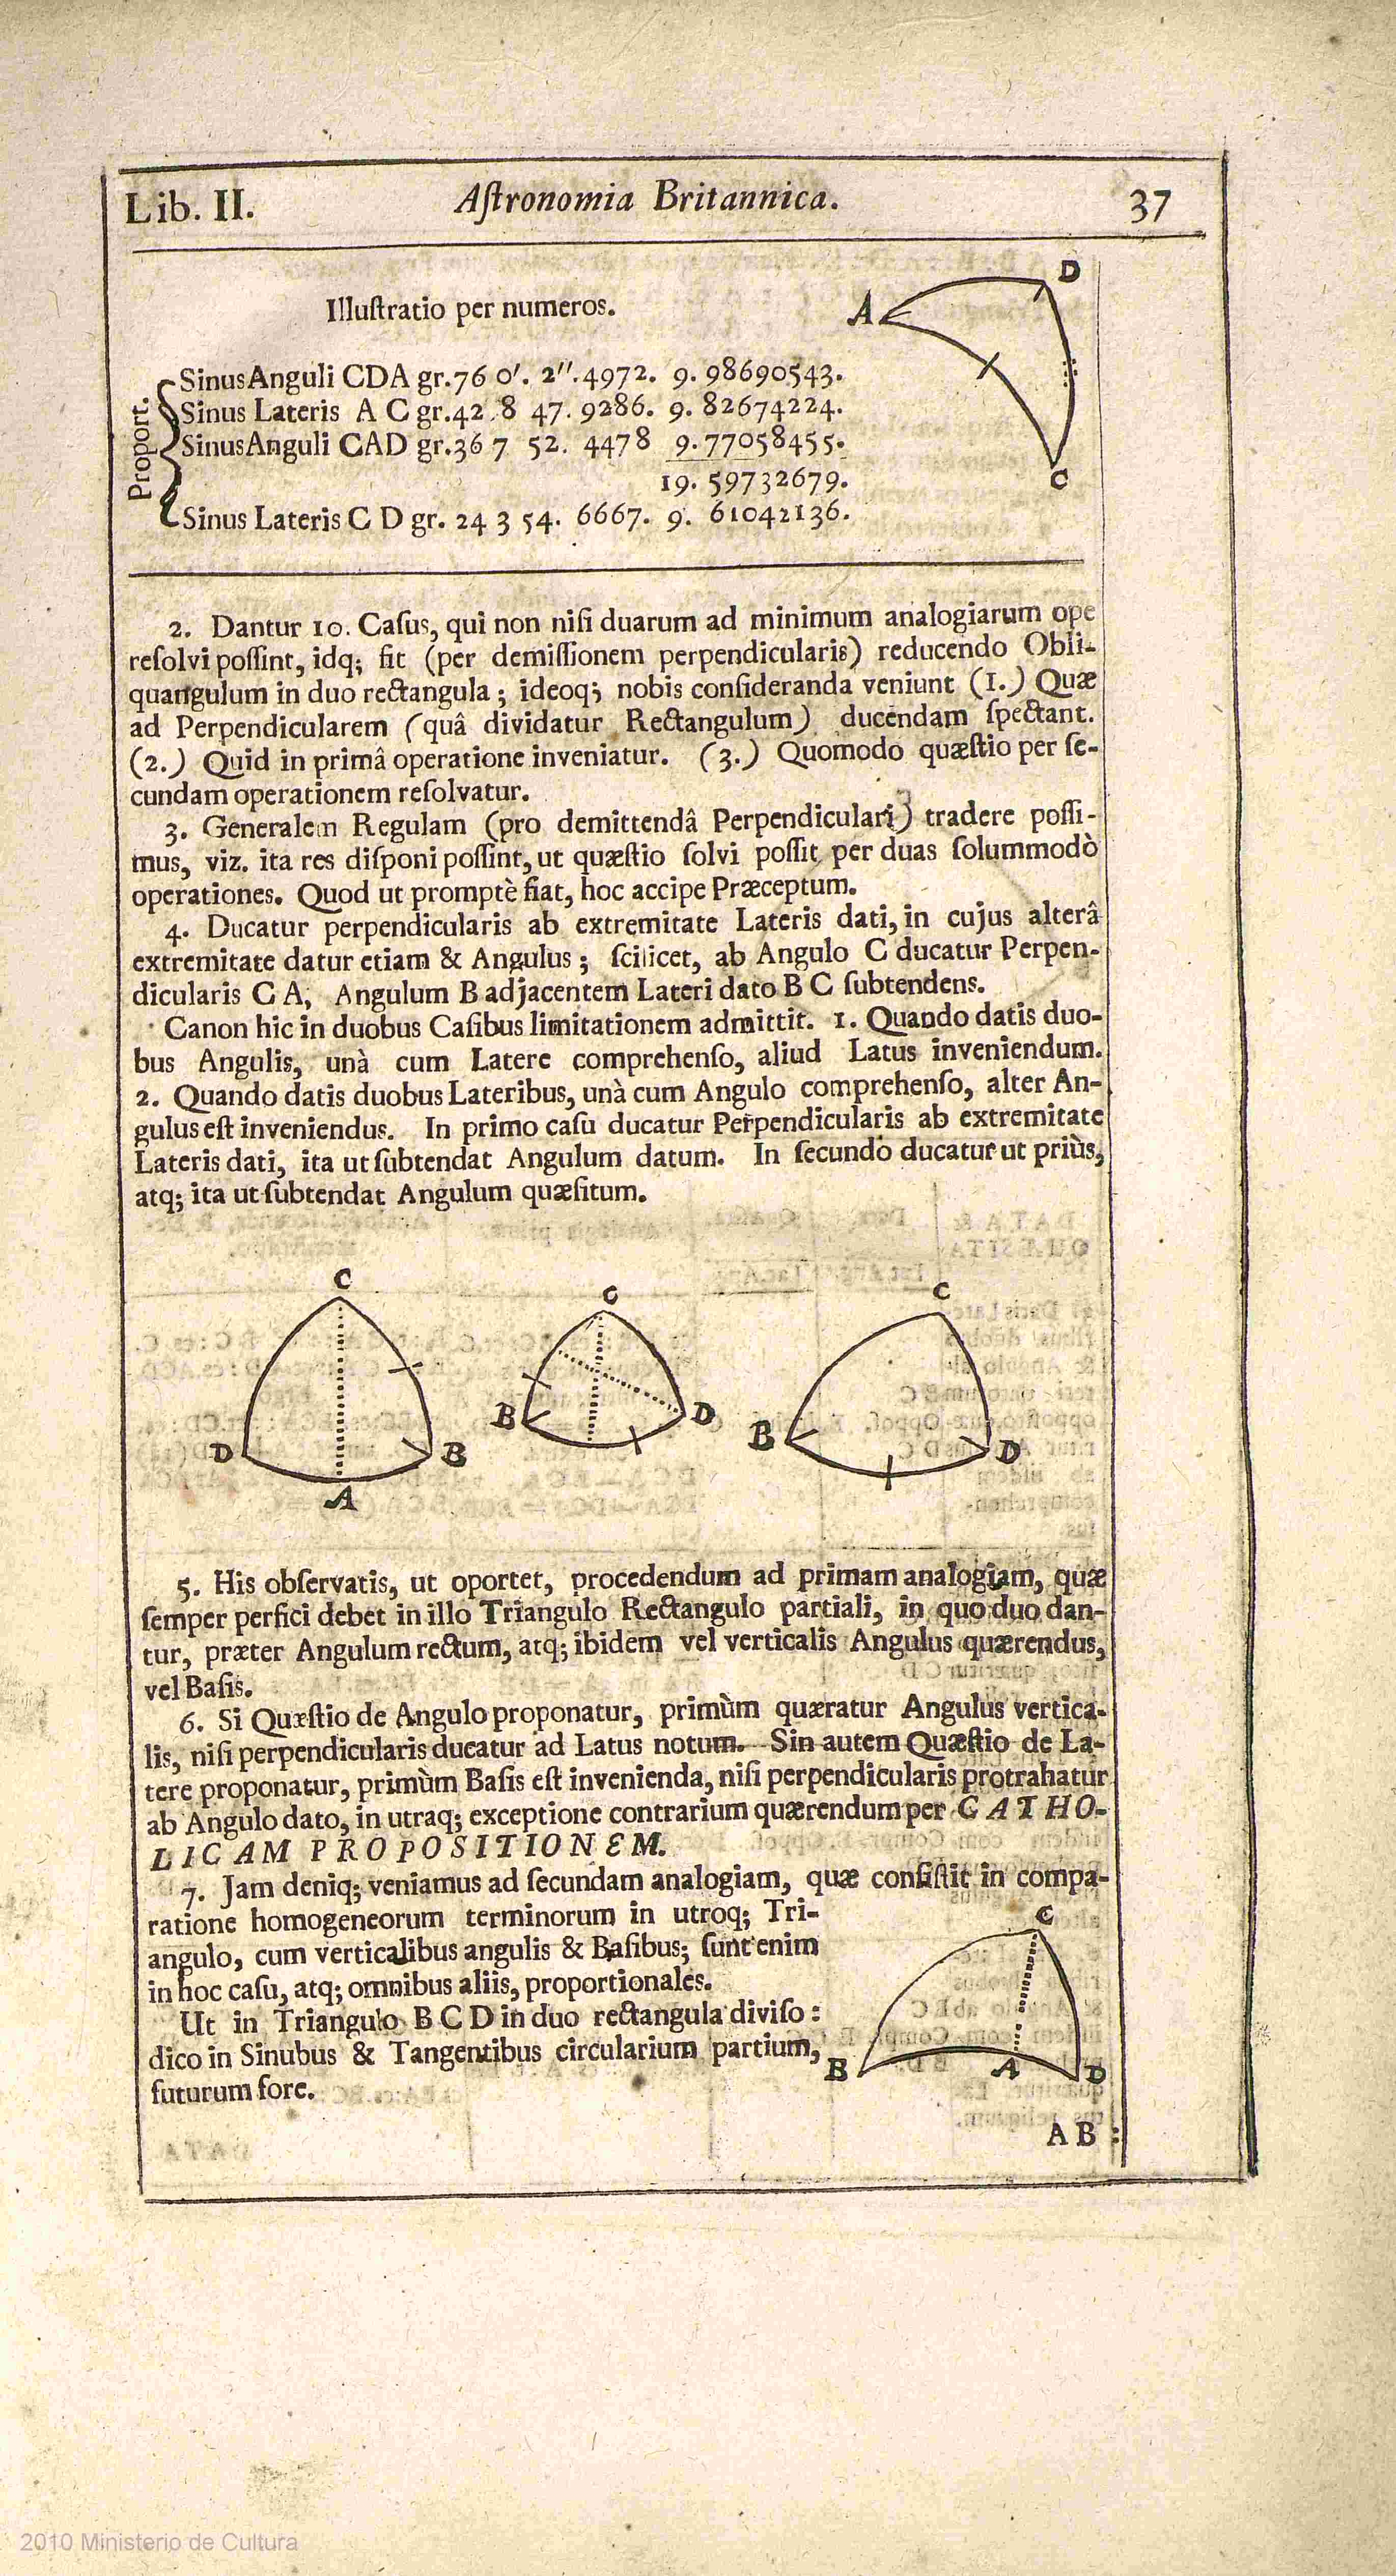 Lib. II. Aſtronomia Britannica. 37
Illuſtratio per numeros.
Proport.
Sinus Anguli CDA gr. 76 0′. 2″. 4972. 9. 98690543.
Sinus Lateris A C gr. 42 8 47. 9286. 9. 82674224.
Sinus Anguli CAD gr. 36 7 52. 4478 9. 77058455.
19. 59732679.
Sinus Lateris C D gr. 24 3 54. 6667. 9. 61042136.
A D C
2. Dantur 10. Caſus, qui non niſi duarum ad minimum analogiarum ope
reſolvi poſſint, idq; fit (per demiſſionem perpendicularis) reducendo Obli-
quangulum in duo rectangula; ideoq; nobis conſideranda veniunt (1.) Quæ
ad Perpendicularem (quâ dividatur Rectangulum) ducendam ſpectant.
(2.) Quid in primâ operatione inveniatur. (3.) Quomodo quæſtio per ſe-
cundam operationem reſolvatur.
3. Generalem Regulam (pro demittendâ Perpendiculari) tradere poſſi-
mus, viz. ita res diſponi poſſint, ut quæſtio ſolvi poſſit per duas ſolummodò
operationes. Quod ut promptè fiat, hoc accipe Præceptum.
4. Ducatur perpendicularis ab extremitate Lateris dati, in cujus alterâ
extremitate datur etiam & Angulus; ſcilicet, ab Angulo C ducatur Perpen-
dicularis C A, Angulum B adjacentem Lateri dato B C ſubtendens.
Canon hic in duobus Caſibus limitationem admittit. 1. Quando datis duo-
bus Angulis, unà cum Latere comprehenſo, aliud Latus inveniendum.
2. Quando datis duobus Lateribus, unà cum Angulo comprehenſo, alter An-
gulus eſt inveniendus. In primo caſu ducatur Perpendicularis ab extremitate
Lateris dati, ita ut ſubtendat Angulum datum. In ſecundo ducatur ut priùs,
atq; ita ut ſubtendat Angulum quæſitum.
C C C
D B B D B D
A
5. His obſervatis, ut oportet, procedendum ad primam analogiam, quæ
ſemper perfici debet in illo Triangulo Rectangulo partiali, in quo duo dan-
tur, præter Angulum rectum, atq; ibidem vel verticalis Angulus quærendus,
vel Baſis.
6. Si Quæſtio de Angulo proponatur, primùm quæratur Angulus vertica-
lis, niſi perpendicularis ducatur ad Latus notum. Sin autem Quæſtio de La-
tere proponatur, primùm Baſis eſt invenienda, niſi perpendicularis protrahatur
ab Angulo dato, in utraq; exceptione contrarium quærendum per CATHO-
LICAM PROPOSITIONEM.
7. Jam deniq; veniamus ad ſecundam analogiam, quæ conſiſtit in compa-
ratione homogeneorum terminorum in utroq; Tri-
angulo, cum verticalibus angulis & Baſibus; ſunt enim
in hoc caſu, atq; omnibus aliis, proportionales.
Ut in Triangulo B C D in duo rectangula diviſo:
dico in Sinubus & Tangentibus circularium partium,
futurum fore.
C
B A D
A B :
2010 Ministerio de Cultura